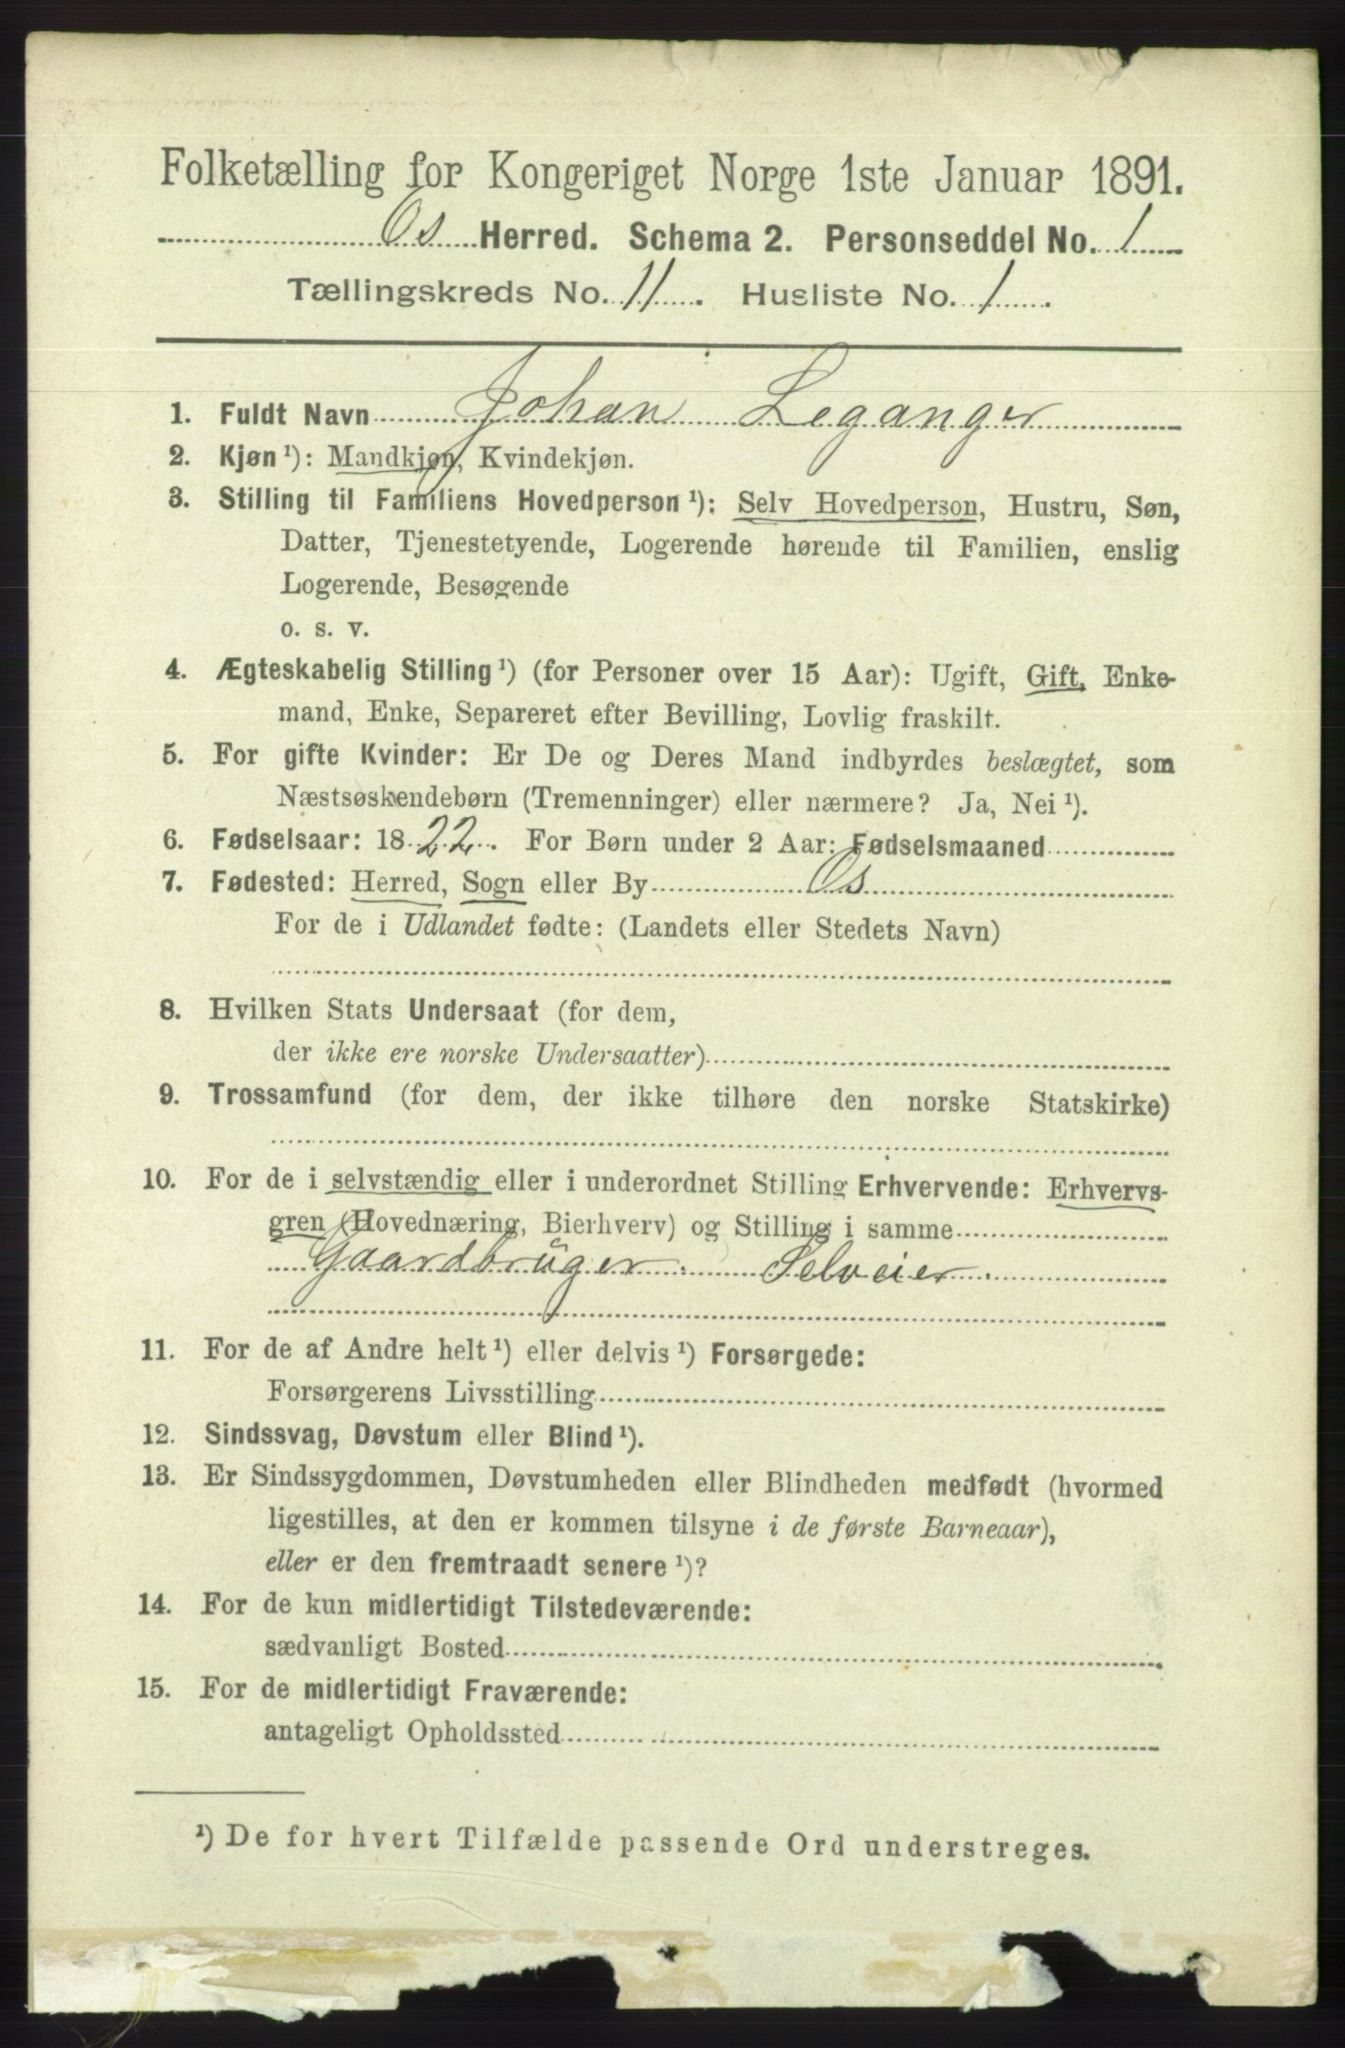 Folketælling for Kongeriget Norge 1ste Januar 1891.
Os Herred. Schema 2. Personseddel No. 1
Tællingskreds No. 11. Husliste No. 1.
1. Fuldt Navn Johan Leganger
2. Kjøn ¹): Mandkjøn, Kvindekjøn.
3. Stilling til Familiens Hovedperson ¹): Selv Hovedperson, Hustru, Søn,
Datter, Tjenestetyende, Logerende hørende til Familien, enslig
Logerende, Besøgende
o. s. v.
4. Ægteskabelig Stilling ¹) (for Personer over 15 Aar): Ugift, Gift, Enke-
mand, Enke, Separeret efter Bevilling, Lovlig fraskilt.
5. For gifte Kvinder: Er De og Deres Mand indbyrdes beslægtet, som
Næstsøskendebørn (Tremenninger) eller nærmere? Ja, Nei ¹).
6. Fødselsaar: 1822. For Børn under 2 Aar: Fødselsmaaned
7. Fødested: Herred, Sogn eller By Os
For de i Udlandet fødte: (Landets eller Stedets Navn)
8. Hvilken Stats Undersaat (for dem,
der ikke ere norske Undersaatter)
9. Trossamfund (for dem, der ikke tilhøre den norske Statskirke)
10. For de i selvstændig eller i underordnet Stilling Erhvervende: Erhvervs-
gren (Hovednæring, Bierhverv) og Stilling i samme
Gaardbrüger. Selveier.
11. For de af Andre helt ¹) eller delvis ¹) Forsørgede:
Forsørgerens Livsstilling
12. Sindssvag, Døvstum eller Blind ¹).
13. Er Sindssygdommen, Døvstumheden eller Blindheden medfødt (hvormed
ligestilles, at den er kommen tilsyne i de første Barneaar),
eller er den fremtraadt senere ¹)?
14. For de kun midlertidigt Tilstedeværende:
sædvanligt Bosted
15. For de midlertidigt Fraværende:
antageligt Opholdssted
¹) De for hvert Tilfælde passende Ord understreges.